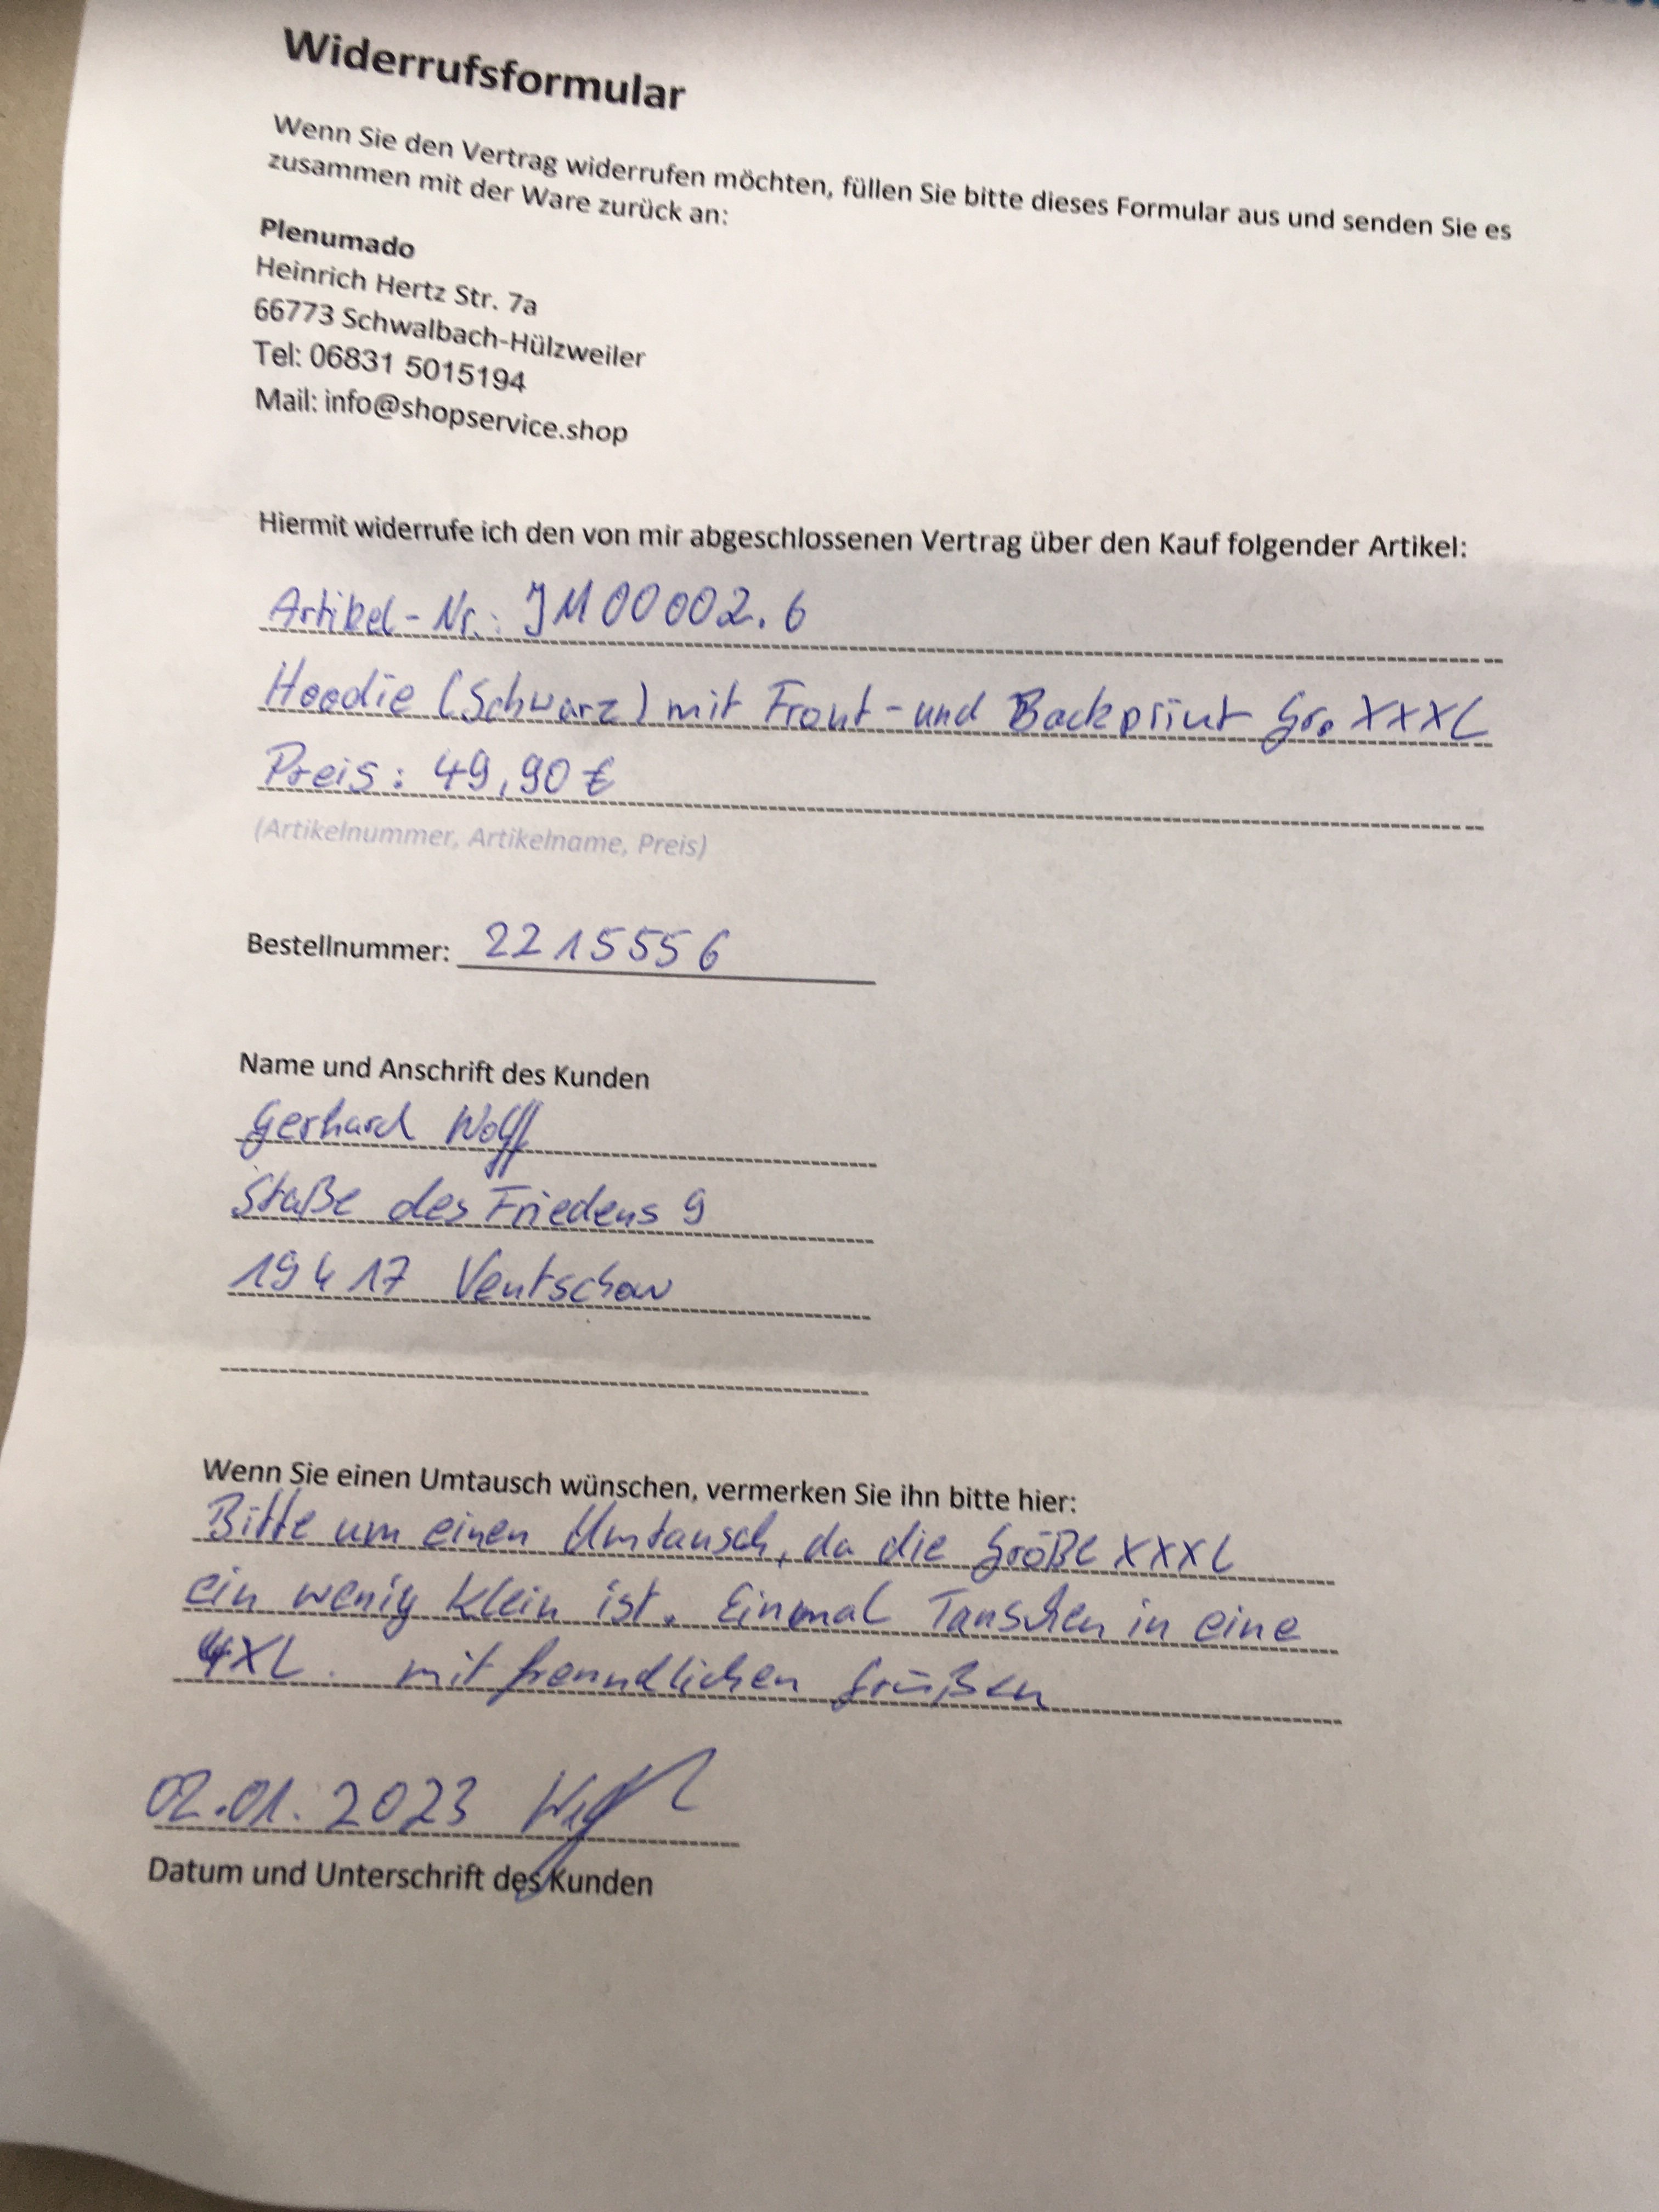 Widerrufsformular
Wenn Sie den Vertrag widerrufen möchten, füllen Sie bitte dieses Formular aus und senden Sie es
zusammen mit der Ware zurück an:
Plenumado
Heinrich Hertz Str. 7a
66773 Schwalbach-Hülzweiler
Tel: 06831 5015194
Mail: info@shopservice.shop
Hiermit widerrufe ich den von mir abgeschlossenen Vertrag über den Kauf folgender Artikel:
Artikel-Nr.: JM00002.6
Hoodie (Schwarz) mit Front- und Backprint Gr. XXXL
Preis: 49,90 €
(Artikelnummer, Artikelname, Preis)
Bestellnummer: 2215556
Name und Anschrift des Kunden
Gerhard Wolff
Staße des Friedens 9
19417 Ventschow
Wenn Sie einen Umtausch wünschen, vermerken Sie ihn bitte hier:
Bitte um einen Umtausch, da die Größe XXXL
ein wenig klein ist. Einmal Tauschen in eine
4XL. mit freundlichen Grüßen
02.01.2023
Datum und Unterschrift des Kunden